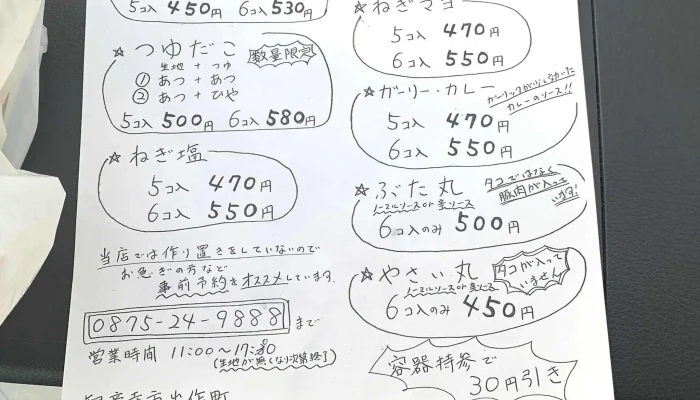 5コ入 450円 6コ入 530円
☆つゆだこ 数量限定
生地 + つゆ
① あつ + あつ
② あつ + ひや
5コ入 500円 6コ入 580円
☆ねぎ塩
5コ入 470円
6コ入 550円
当店では作り置きをしていないので
お急ぎの方など
事前予約をオススメしています。
0875-24-9888 まで
営業時間 11:00〜17:30
(生地が無くなり次第終了)
観音寺市出作町
☆ねぎマヨ
5コ入 470円
6コ入 550円
☆ガーリー・カレー
ガーリックがいい
カレーのソース!!
5コ入 470円
6コ入 550円
☆ぶた丸
タコではなく
豚肉が入って
います!
ノーマルソース or
6コ入のみ 500円
☆やさい丸
タコが入って
いません
ノーマルソース or
6コ入のみ 450円
容器持参で
30円引き